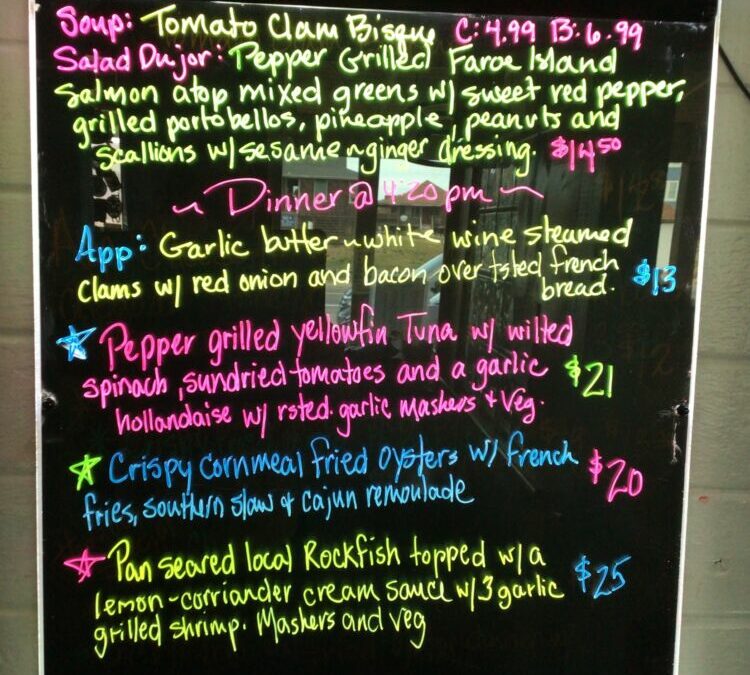 Soup: Tomato Clam Bisque C: 4.99 B: 6.99
Salad Dujor: Pepper Grilled Faroe Island
Salmon atop mixed greens w/ sweet red pepper,
grilled portobellos, pineapple, peanuts and
scallions w/ sesame~ginger dressing. $14.50
~ Dinner @ 4:20 pm ~
App: Garlic butter~white wine steamed
clams w/ red onion and bacon over tsted french
bread. $13
Pepper grilled yellowfin Tuna w/ wilted
spinach, sundried tomatoes and a garlic $21
hollandaise w/ rsted. garlic mashers + veg.
Crispy cornmeal fried oysters w/ french $20
fries, southern slaw & cajun remoulade
Pan seared local Rockfish topped w/ a
lemon-corriander cream sauce w/ 3 garlic $25
grilled shrimp. Mashers and veg